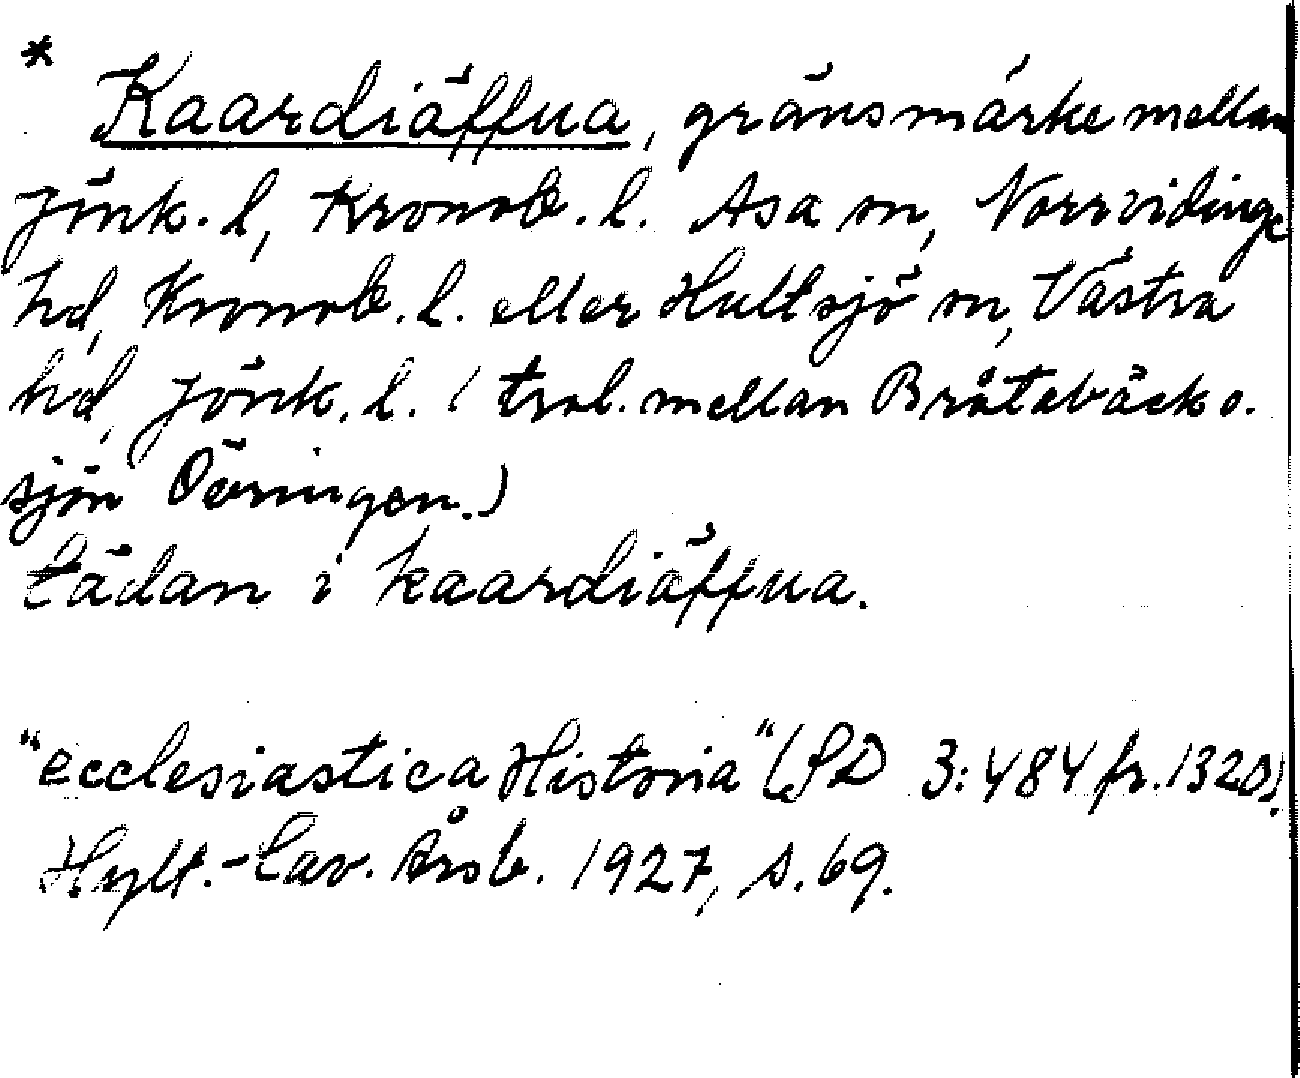 *
Kaardiäffua, gränsmärke mellan
Jönk. l, Kronob. l. Asa sn, Norrvidinge
hd, Kronob. l. eller Hultsjö sn, Västra
hd, Jönk. l. ( trol. mellan Bråtabäck o.
sjön Övringen.)
tädan i kaardiäffua.
"ecclesiastica Historia" (SD 3:484 fr. 1320).
Hylt.-Cav. Årsb. 1927, s. 69.